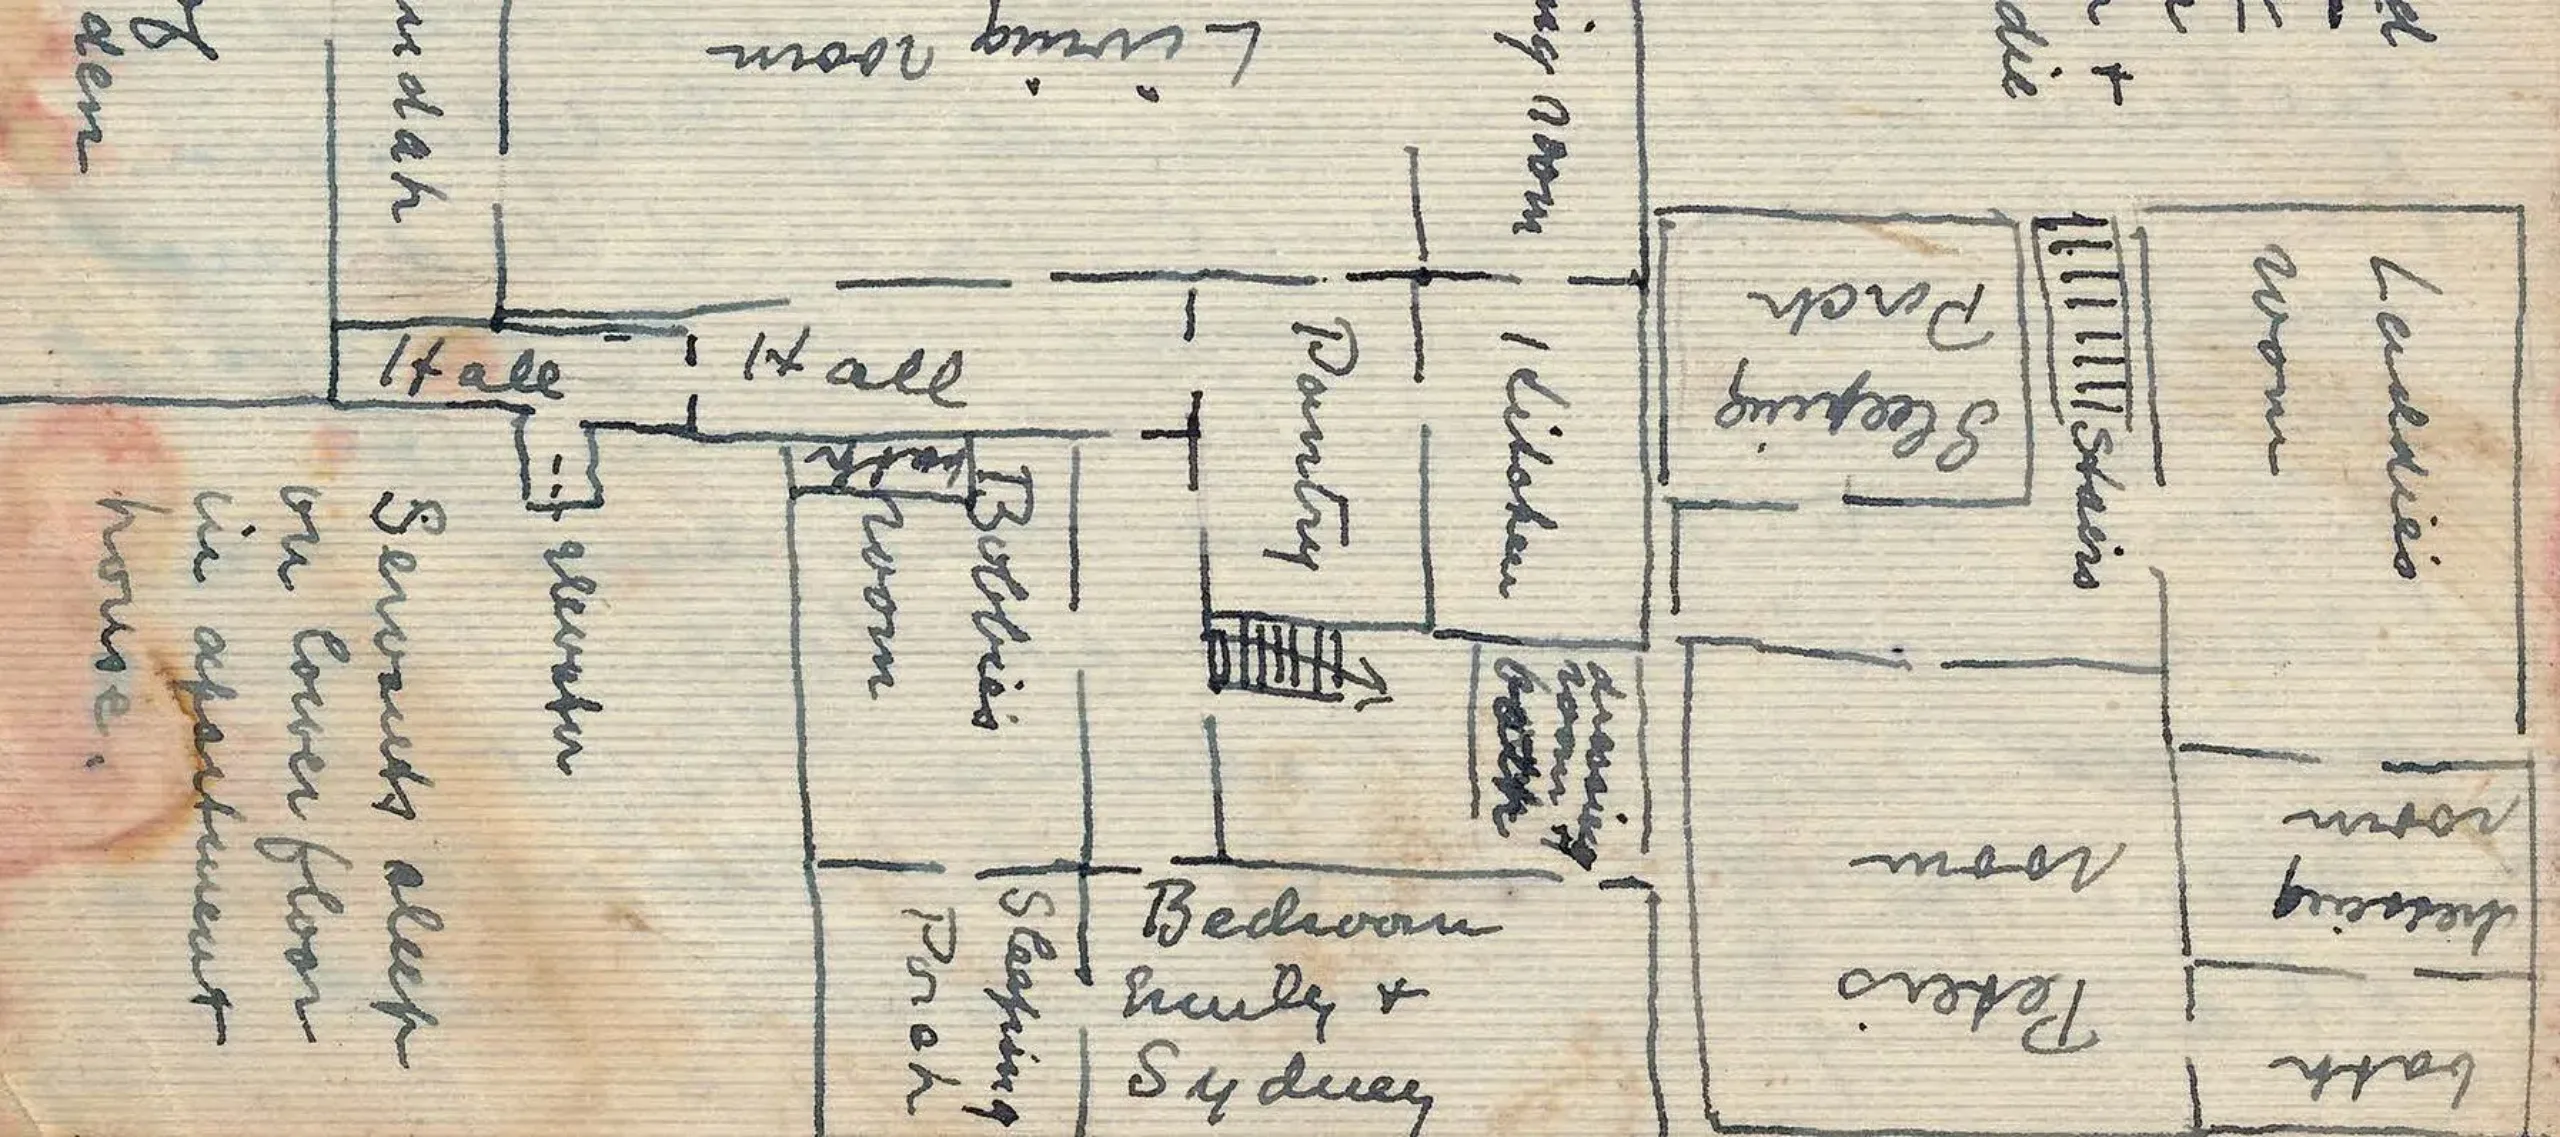 den
ndah
Living room
ing room
die
+
d
Hall
Hall
Pantry
Kitchen
Sleeping
Porch
Stairs
Laddies
room
bath
Bobbies
room
elevator
Servants sleep
on lower floor
in apartment
house.
dressing
room +
bath
Sleeping
Porch
Bedroom
Emily +
Sydney
Peters
room
dressing
room
bath